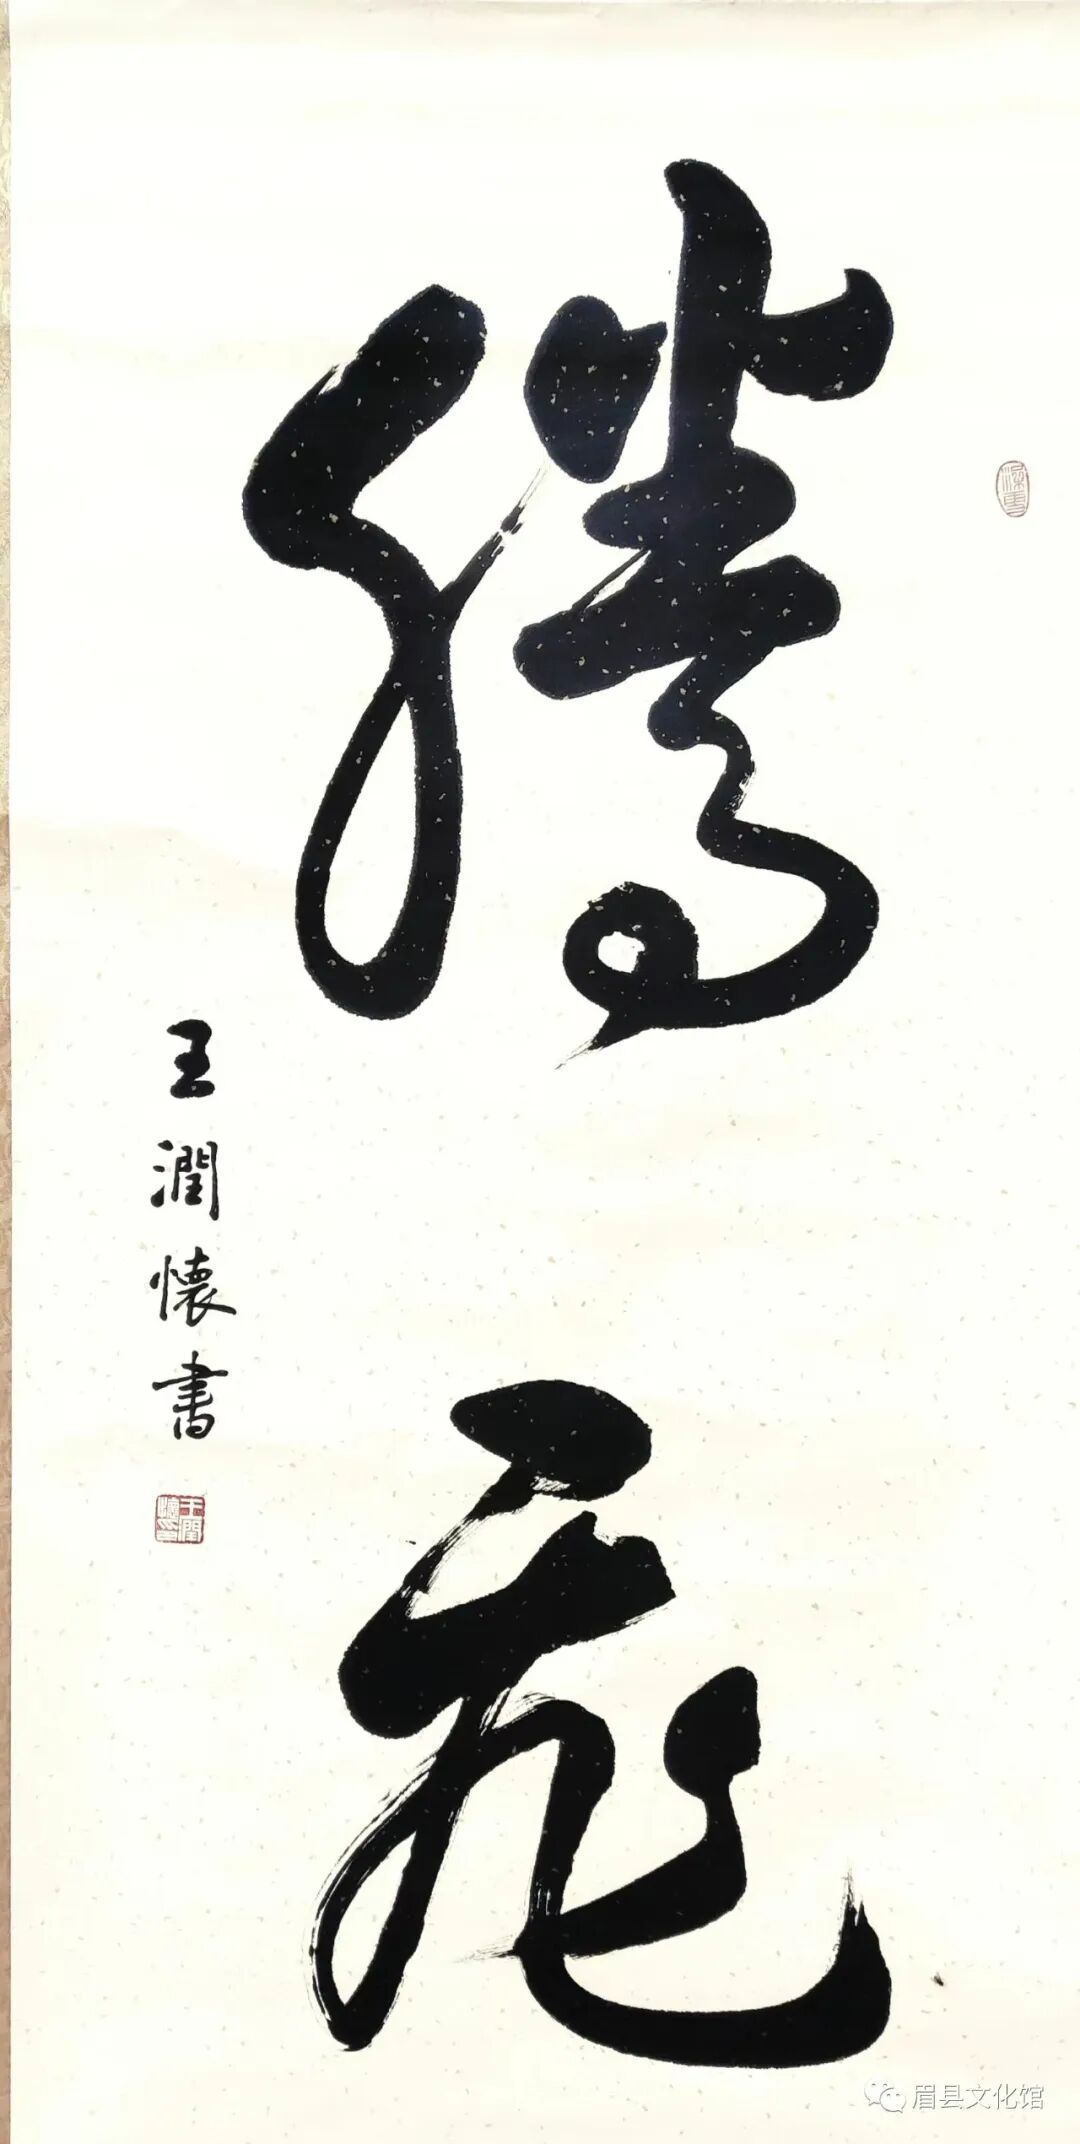 腾飛
王潤懷書
眉县文化馆